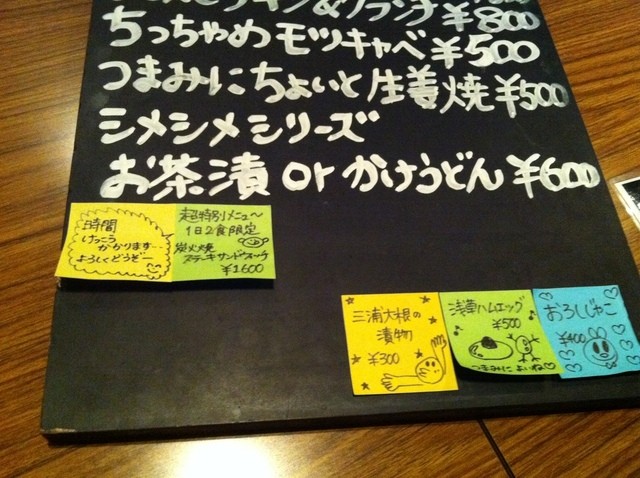 チキン&フランク ¥800
ちっちゃめモツキャベ ¥500
つまみにちょいと生姜焼 ¥500
シメシメシリーズ
お茶漬 or かけうどん ¥600
時間
けっこう
かかります…
よろしくどうぞー
超特別メニュ〜
1日2食限定
炭火焼
ステーキサンドウィッチ
¥1600
三浦大根の
漬物
¥300
浅草ハムエッグ
¥500
つまみによいね♡
おろしじゃこ
¥400